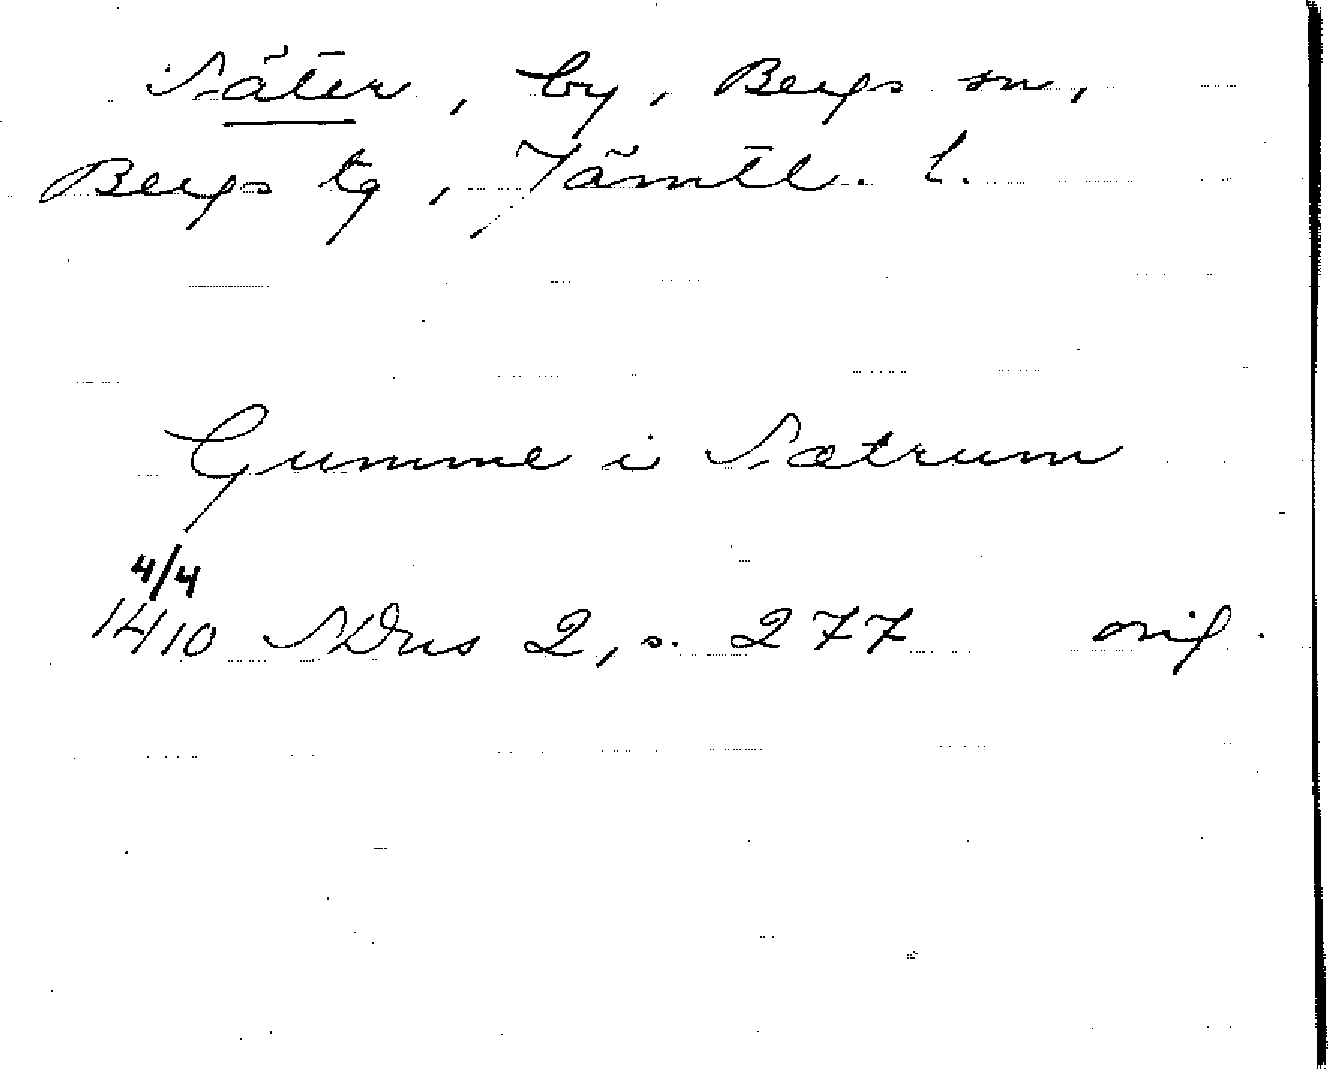 Näter, by, Bergs sn,
Bergs tg, Jämtl. l.
Gumme i Nætrum
4/4
1410 NDns 2, s. 277 orig.